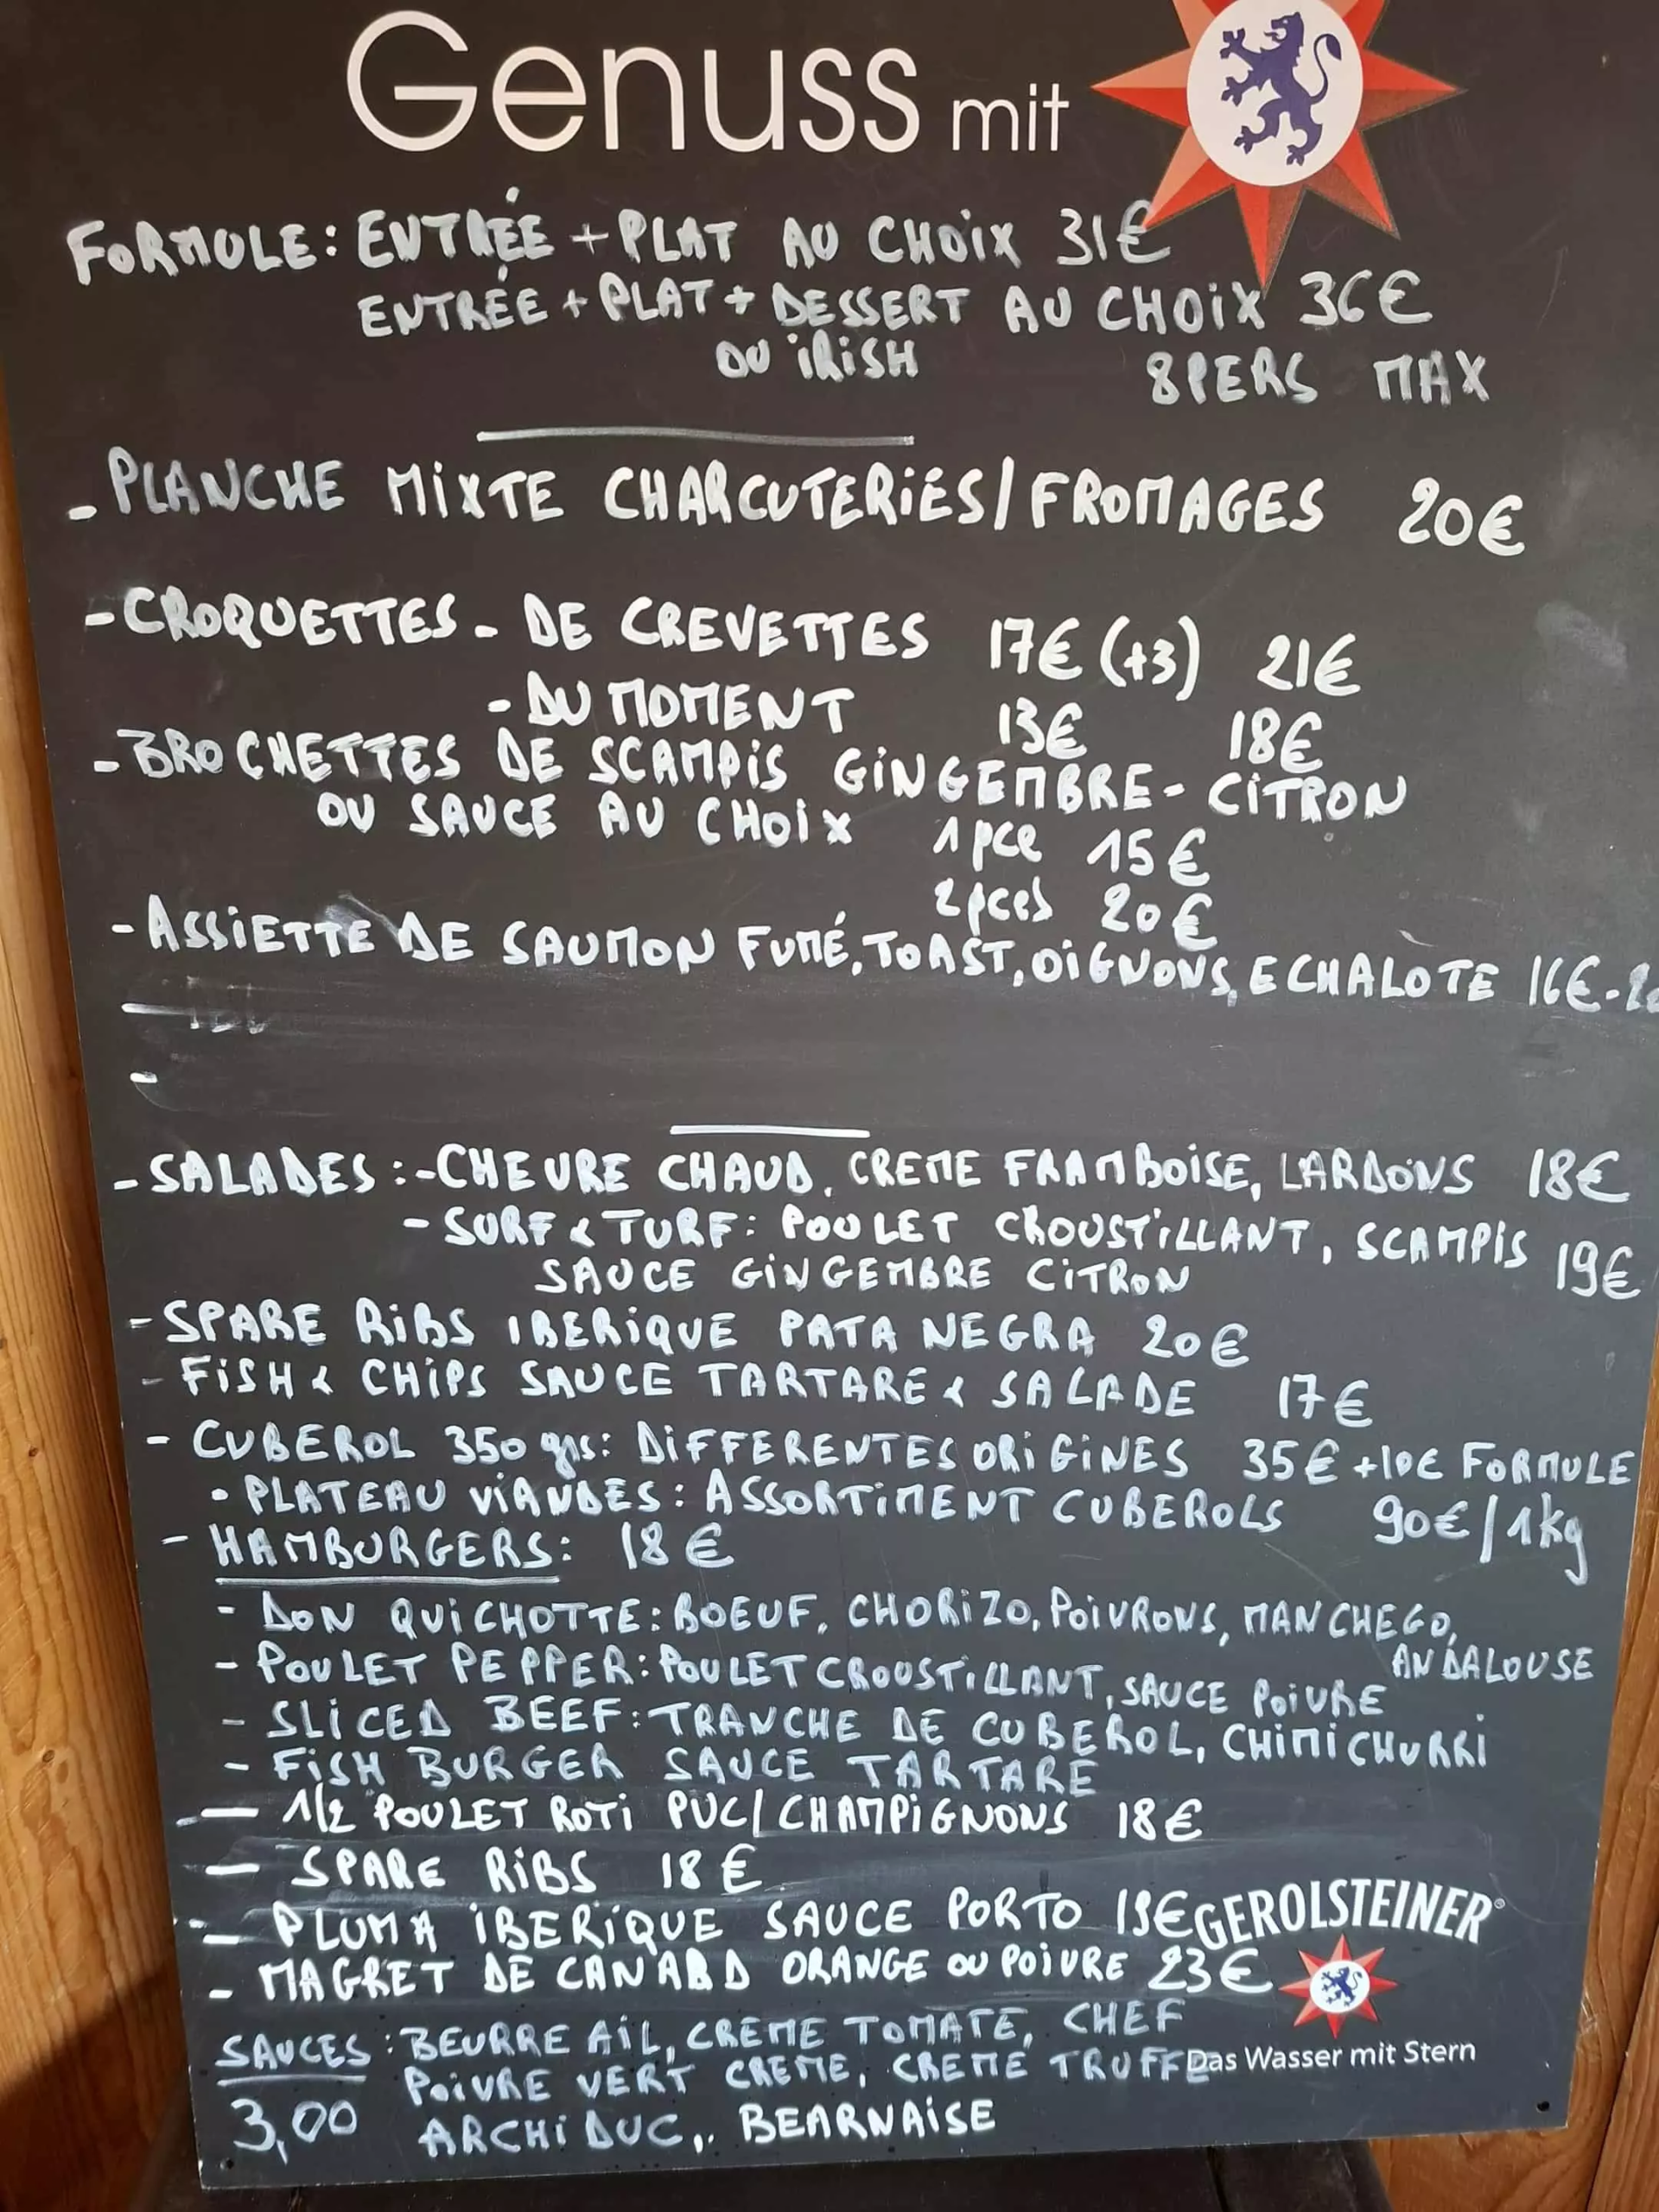 Genuss mit
FORMULE: ENTRÉE + PLAT AU CHOIX 31€
ENTRÉE + PLAT + DESSERT AU CHOIX 36€
OU IRISH 8PERS MAX
- PLANCHE MIXTE CHARCUTERIES/FROMAGES 20€
- CROQUETTES - DE CREVETTES 17€ (+3) 21€
- DU MOMENT 13€ 18€
- BROCHETTES DE SCAMPIS GINGEMBRE - CITRON
OU SAUCE AU CHOIX 1 pce 15€
2 pces 20€
- ASSIETTE DE SAUMON FUMÉ, TOAST, OIGNONS, ECHALOTE 16€-
-
-
- SALADES : - CHEVRE CHAUD, CREME FRAMBOISE, LARDONS 18€
- SURF & TURF: POULET CROUSTILLANT, SCAMPIS 19€
SAUCE GINGEMBRE CITRON
- SPARE RIBS IBERIQUE PATA NEGRA 20€
- FISH & CHIPS SAUCE TARTARE & SALADE 17€
- CUBEROL 350 grs: DIFFERENTES ORIGINES 35€ +10€ FORMULE
• PLATEAU VIANDES: ASSORTIMENT CUBEROLS 90€/1kg
- HAMBURGERS: 18€
- DON QUICHOTTE: BOEUF, CHORIZO, POIVRONS, MANCHEGO,
ANDALOUSE
- POULET PEPPER: POULET CROUSTILLANT, SAUCE POIVRE
- SLICED BEEF: TRANCHE DE CUBEROL, CHIMICHURRI
- FISH BURGER SAUCE TARTARE
- 1/2 POULET ROTI PUC/CHAMPIGNONS 18€
- SPARE RIBS 18€
- PLUMA IBERIQUE SAUCE PORTO GEROLSTEINER®
- MAGRET DE CANARD ORANGE OU POIVRE 23€
SAUCES : BEURRE AIL, CREME TOMATE, CHEF
POIVRE VERT CREME, CREME TRUFFE Das Wasser mit Stern
3,00 ARCHIDUC, BEARNAISE